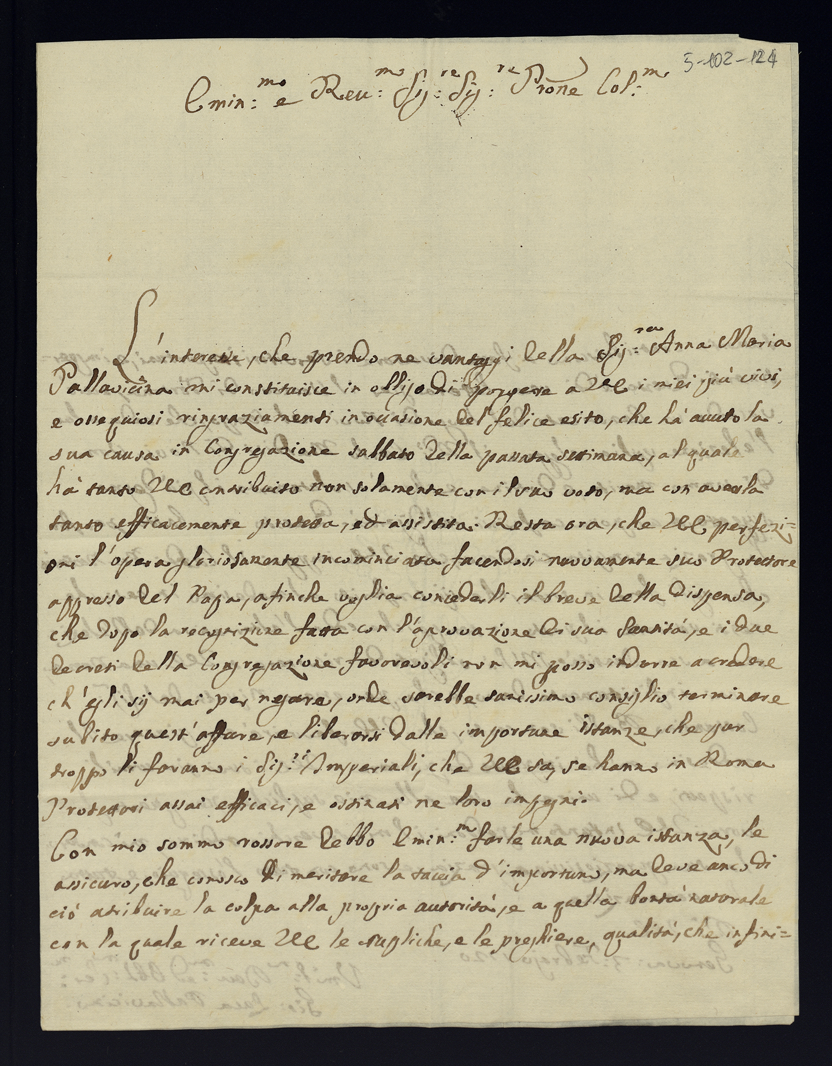 5-102-124
Emin:mo e Reu:mo Sig:re Sig:re Prone Col:mo
L'interesse, che prendo ne vantaggi della Sig:ra Anna Maria
Pallavicina mi constituisce in obligo di porgere a VE i miei più vivi,
e ossequiosi ringraziamenti in occasione del felice esito, che hà avuto la
sua causa in Congregazione sabbato della passata settimana, al quale
hà tanto VE contribuito non solamente con il suo voto, ma con averla
tanto efficacemente protetta, ed assistita. Resta ora, che VE perfezi=
oni l'opera gloriosamente incominciata facendosi nuovamente suo Protettore
appresso del Papa, afinche voglia concederli il breve della dispensa,
che dopo la recognizione fatta con l'aprovazione di sua Santità, e i due
decreti della Congregazione favorevoli non mi posso indurre a credere
ch'egli sij mai per negare, onde sarebbe sanissimo consiglio terminare
subito quest'affare, e liberarsi dalle importune istanze, che pur
troppo li faranno i Sig:ri Imperiali, che VE sa, se hanno in Roma
Protettori assai efficaci, e ostinati ne loro impegni.
Con mio sommo rossore debbo Emin:mo farle una nuova istanza, le
assicuro, che conosco di meritare la taccia d'importuno, ma deve anco di
ciò atribuire la colpa alla propria autorità, e a quella bontà naturale
con la quale riceve VE le supliche, e le preghiere, qualità, che infini=